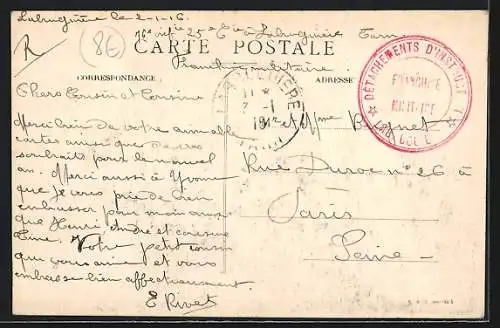 Labruguière le 2-1-16.
8€
R
76e inf ie 25 Cie à Labruguière Tarn
CARTE POSTALE
Franchise militaire
CORRESPONDANCE
ADRESSE
Chers Cousin et Cousine
Merci bien de votre aimable
cartes ainsi que de vos
souhaits pour le nouvel
an. Merci aussi à Yvonne
que je vous prie de bien
embrasser pour moi ainsi
que Henri, André et cousine
Line. Votre petit cousin
qui vous aime et vous
embrasse bien affectueusement
E Rivet
et Mme
Rue Duroc no 26 à
Paris
Seine
LABRUGUIERE
TARN
DÉTACHEMENTS D'INSTRUCTION
FRANCHISE
MILITAIRE